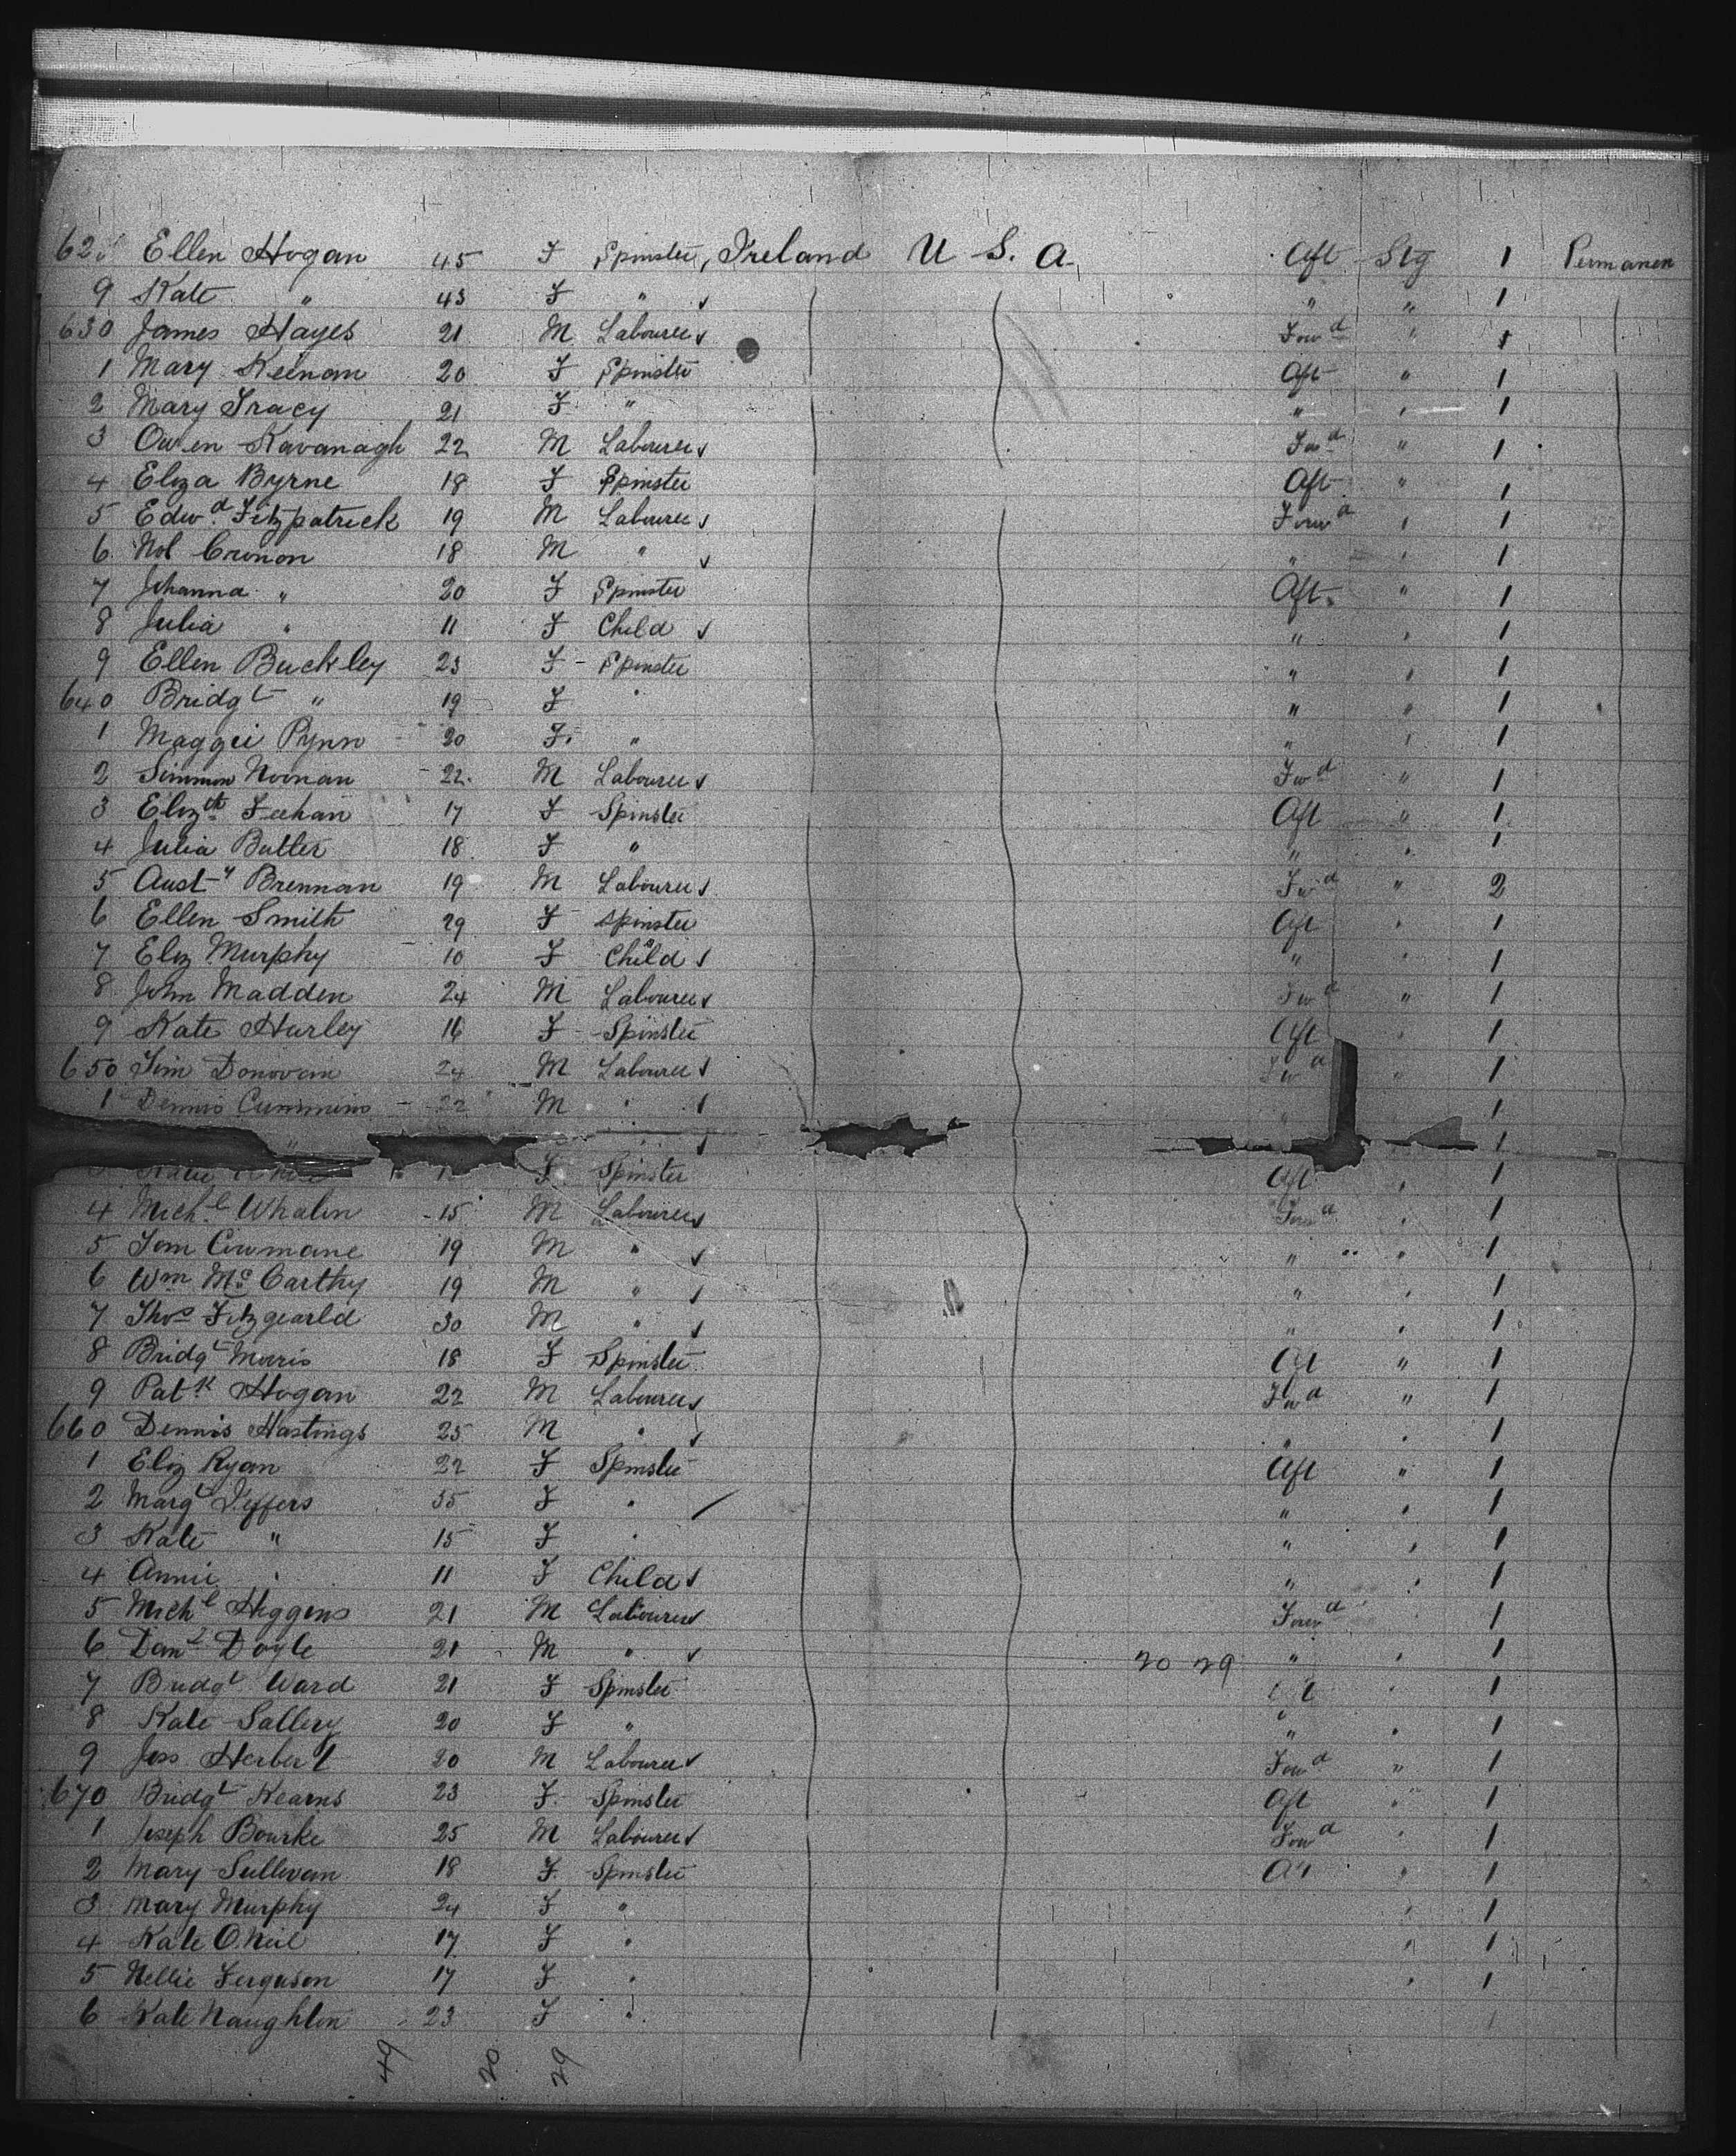 Ellen Hogan 45 F Spinster, Ireland U. S. A. Aft Stg 1 Permanen
9 Kate " 43 F " "  " 1
630 James Hayes 21 M Labourer Forwd " 1
1 Mary Keenan 20 F Spinster Aft " 1
2 Mary Tracy 21 F " " " 1
3 Owen Kavanagh 22 M Labourer Fwd " 1
4 Eliza Byrne 18 F Spinster Aft " 1
5 Edwd Fitzpatrick 19 M Labourer Forwd " 1
6 Cronon 18 M " " " 1
7 Johanna " 20 F Spinster Aft " 1
8 Julia " 11 F Child " " 1
9 Ellen Buckley 23 F Spinster " " 1
640 Bridgt " 19 F " " " 1
1 Maggie Pynn 20 F " " " 1
2 Simmon Noonan 22 M Labourer Fwd " 1
3 Elizth Feehan 17 F Spinster Aft " 1
4 Julia Butler 18 F " " " 1
5 Austy Brennan 19 M Labourer Fwd " 2
6 Ellen Smith 29 F Spinster Aft " 1
7 Eliz Murphy 10 F Child " " 1
8 John Madden 24 M Labourer Fwd " 1
9 Kate Hurley 16 F Spinster Aft " 1
650 Tim Donovan 24 M Labourer Fwd " 1
1 Dennis Cummins 22 M " 1
" " 1
F Spinster Aft " 1
4 Michl Whalen 15 M Labourer Forwd " 1
5 Tom Cowmane 19 M " " " 1
6 Wm McCarthy 19 M " " " 1
7 Thos Fitzgearld 30 M " " " 1
8 Bridgt Morris 18 F Spinster Aft " 1
9 Patk Hogan 22 M Labourer Fwd " 1
660 Dennis Hastings 25 M " " " 1
1 Eliz Ryan 22 F Spinster Aft " 1
2 Margt Jeffers 35 F " " " 1
3 Kate " 15 F " " " 1
4 Annie " 11 F Child " " 1
5 Michl Higgens 21 M Labourer Forwd " 1
6 Danl Doyle 21 M " 20 29 " " 1
7 Bridgt Ward 21 F Spinster " 1
8 Kate Sallery 20 F " " " 1
9 Jos Herbert 20 M Labourer Forwd " 1
670 Bridgt Kearns 23 F Spinster Aft " 1
1 Joseph Bourke 25 M Labourer Forwd " 1
2 Mary Sullivan 18 F Spinster Aft " 1
3 Mary Murphy 24 F " " 1
4 Kate O.Neil 17 F " " 1
5 Nellie Ferguson 17 F " " 1
6 Kate Naughton 23 F " 1
49 20 29